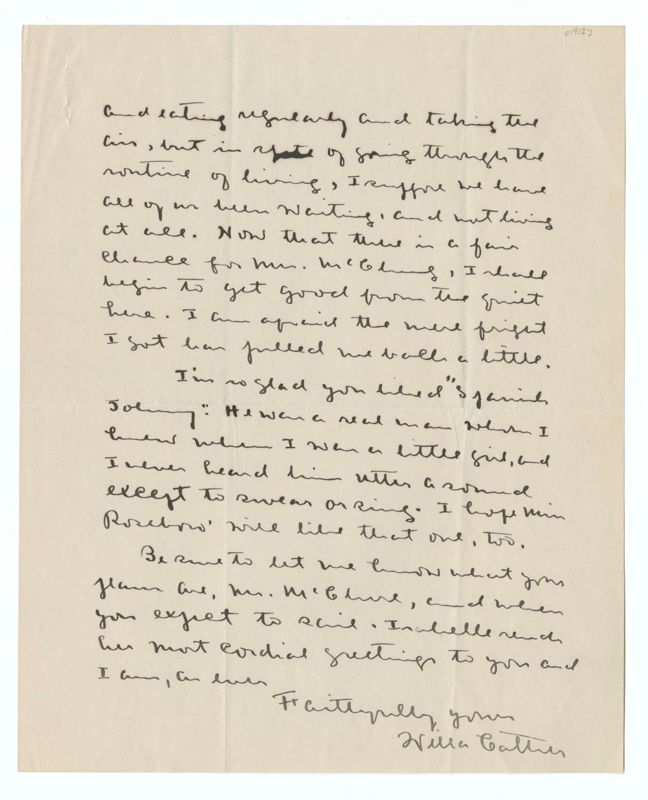 and eating regularly and taking the
air, but in spite of going through the
routine of living, I suppose we have
all of us been waiting, and not living
at all. Now that there is a fair
chance for Mrs. McClung, I shall
begin to get good from the quiet
here. I am afraid the mere fright
I got has pulled me back a little.
I'm so glad you liked "Spanish
Johnny". He was a real man whom I
knew when I was a little girl, and
I never heard him utter a sound
except to swear or sing. I hope Miss
Roseboro' will like that one, too.
Be sure to let me know what your
plans are, Mr. McClure, and when
you expect to sail. Isabelle sends
her most cordial greetings to you and
I am, as ever
Faithfully yours
Willa Cather